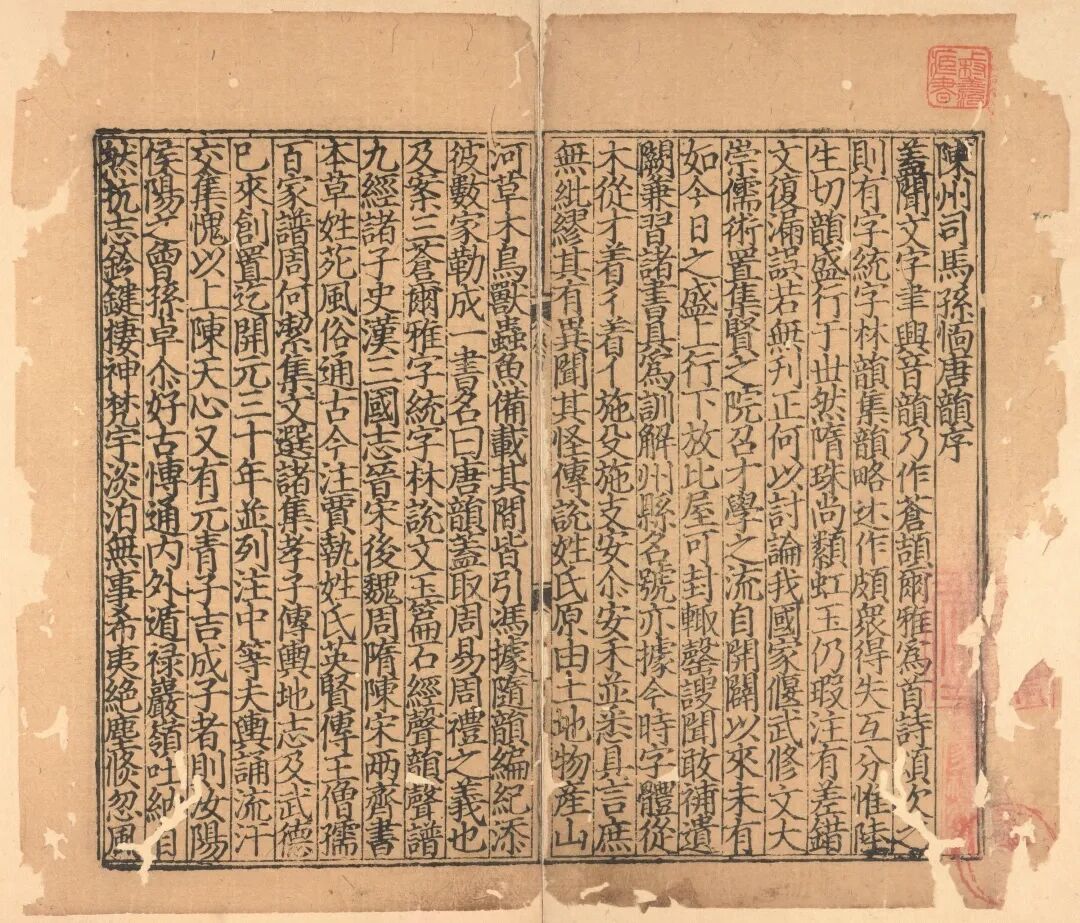 陳州司馬孫愐唐韻序
蓋聞文字聿興音韻乃作蒼頡爾雅爲首詩頌次之
則有字統字林韻集韻略述作頗衆得失互分惟陸
生切韻盛行于世然隋珠尚纇虹玉仍瑕注有差錯
文復漏誤若無刊正何以討論我國家偃武修文大
崇儒術置集賢之院召才學之流自開闢以來未有
如今日之盛上行下放比屋可封輙罄謏聞敢補遺
闕兼習諸書具爲訓解州縣名號亦據今時字體從
木從才着彳着亻施殳施支安尒安禾並悉具言庶
無紕繆其有異聞其怪傳說姓氏原由土地物產山
河草木鳥獸蟲魚備載其間皆引馮據隨韻編紀添
彼數家勒成一書名曰唐韻蓋取周易周禮之義也
及案三蒼爾雅字統字林說文玉篇石經聲韻聲譜
九經諸子史漢三國志晉宋後魏周隋陳宋兩齊書
本草姓苑風俗通古今注賈執姓氏英賢傳王僧孺
百家譜周何潔集文選諸集孝子傳輿地志及武德
已來創置迄開元三十年並列注中等夫輿誦流汗
交集愧以上陳天心又有元青子吉成子者則汝陽
侯陽之曾孫卓尒好古博通內外遁禄巖嶺吐納自
然抗志鈐鍵棲神梵宇淡泊無事希夷絕塵倏忽風